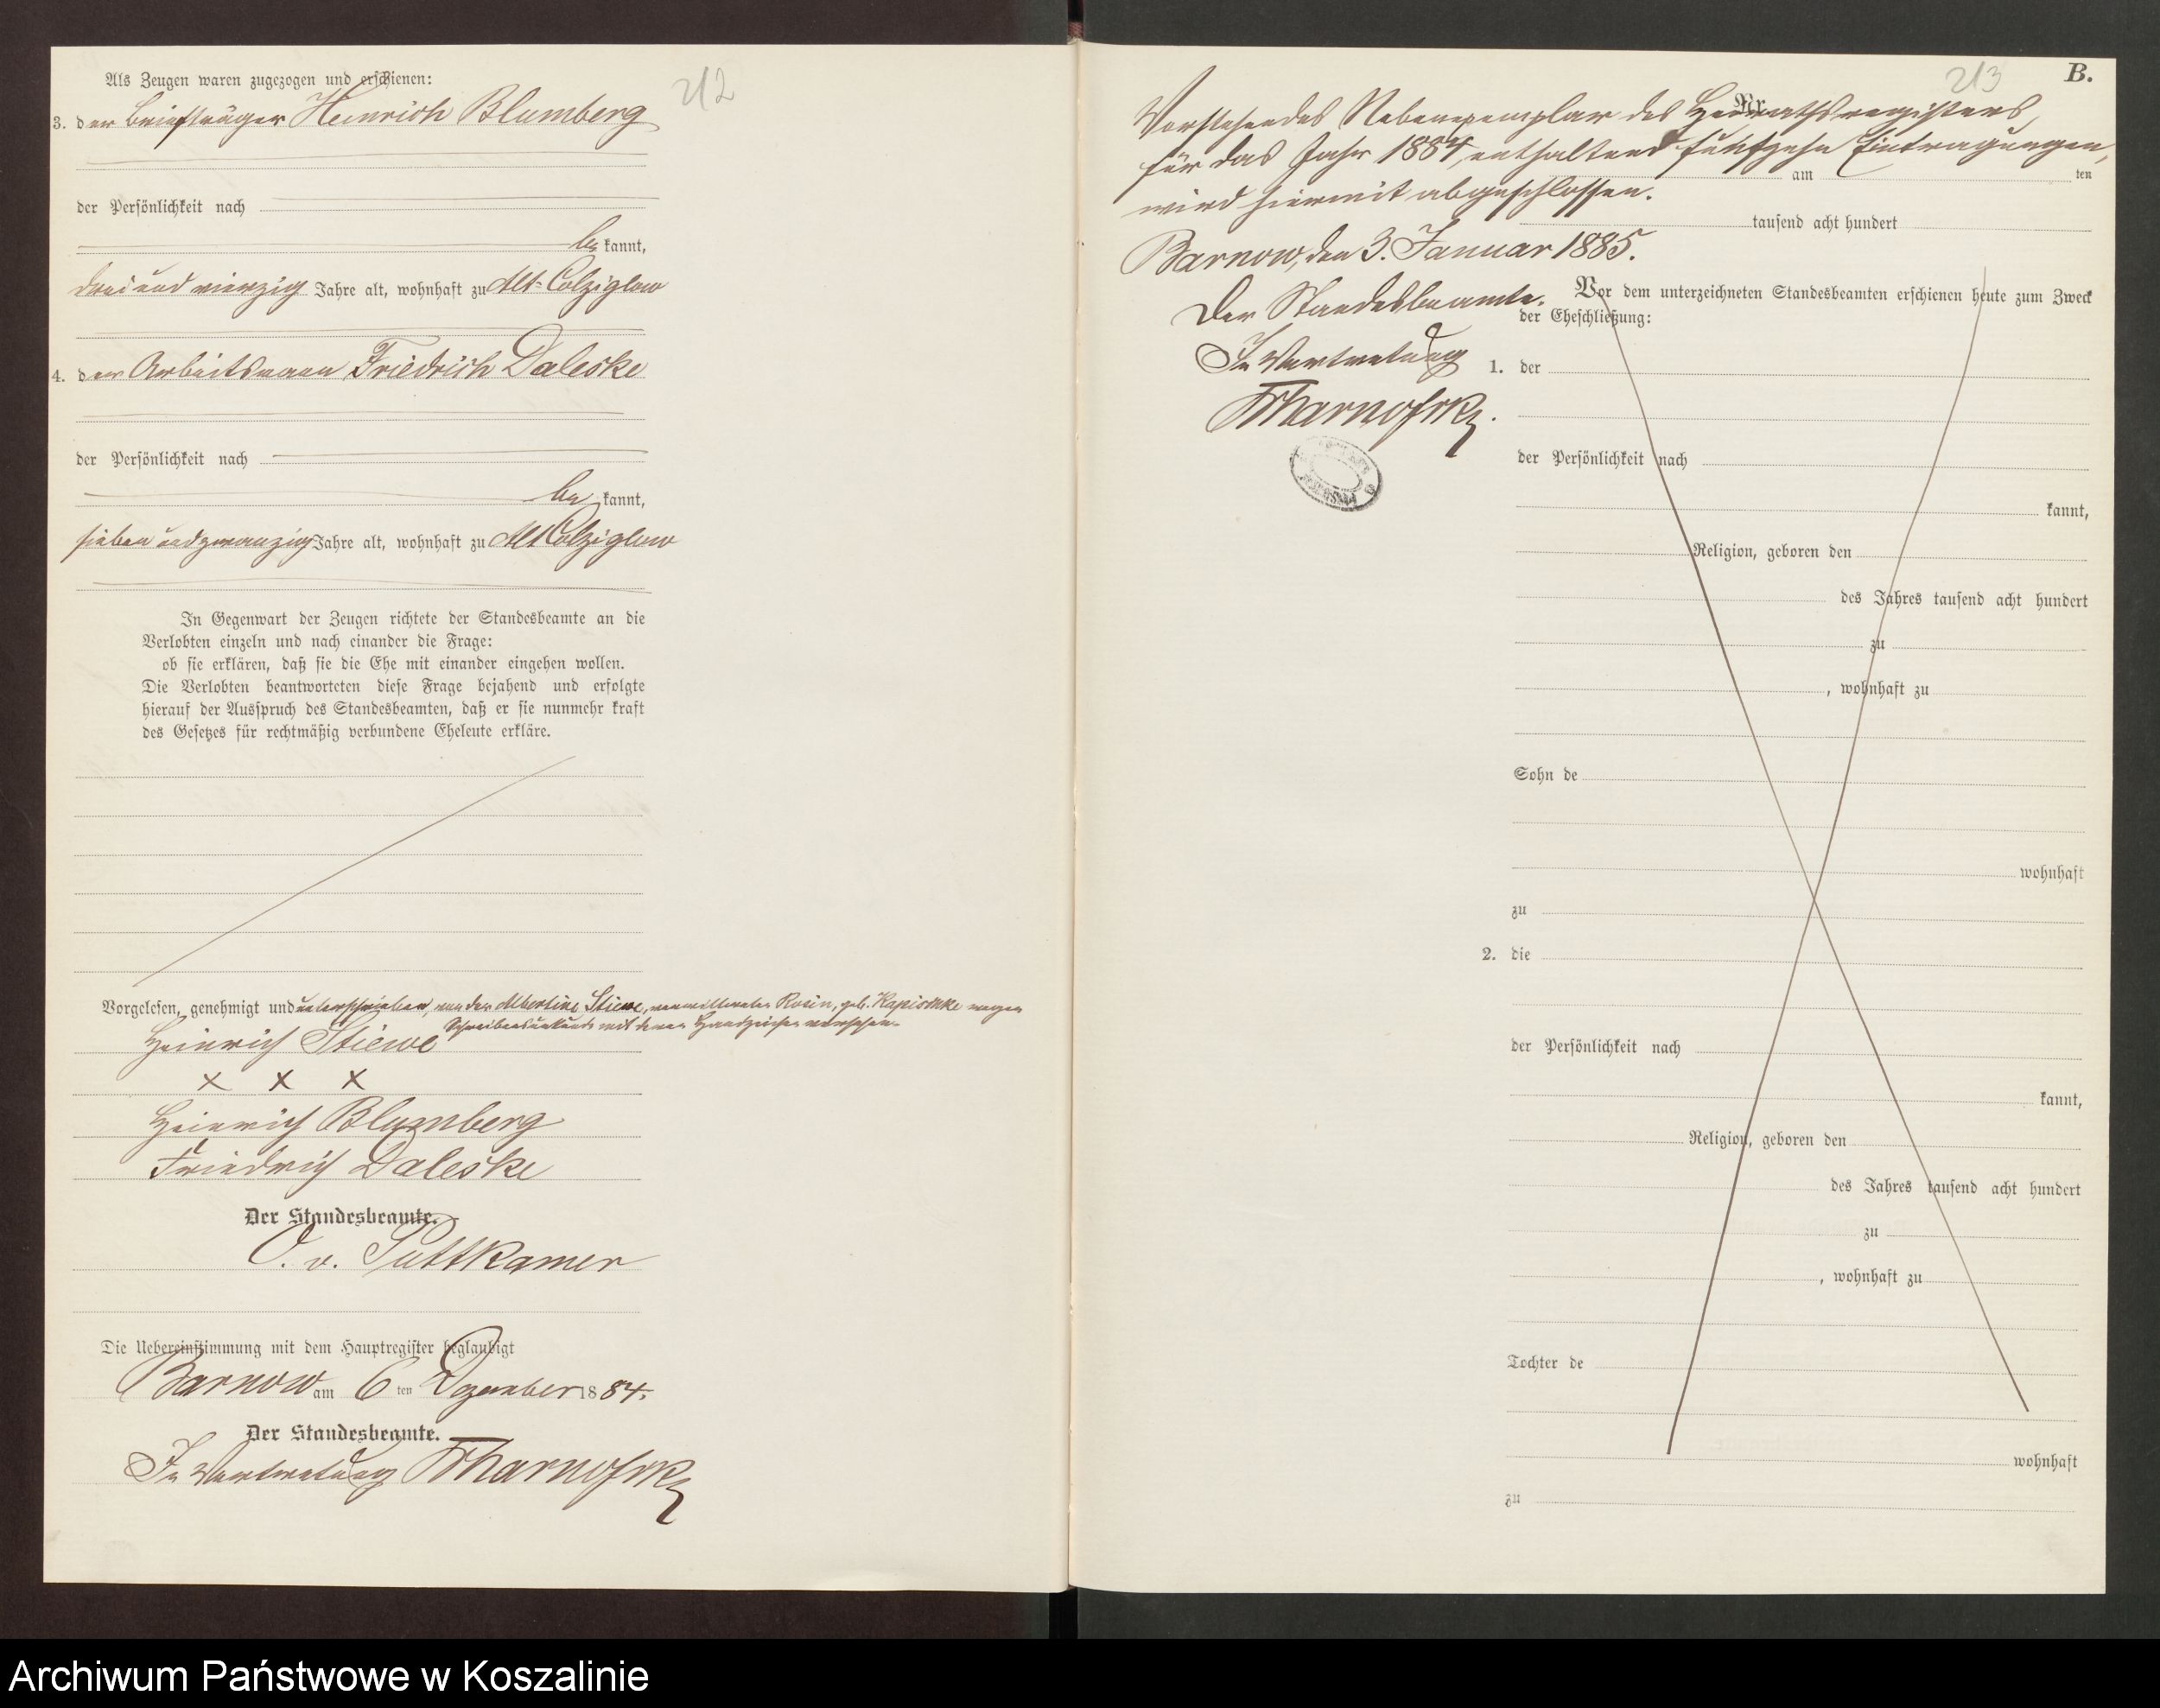 212
Als Zeugen waren zugezogen und erschienen:
3. der Briefträger Heinrich Blumberg
der Persönlichkeit nach
be kannt,
dreiundvierzig Jahre alt, wohnhaft zu Alt-Colziglow
4. der Arbeitsmann Friedrich Daleske
der Persönlichkeit nach
be kannt,
siebenundzwanzig Jahre alt, wohnhaft zu Alt Colziglow
In Gegenwart der Zeugen richtete der Standesbeamte an die
Verlobten einzeln und nach einander die Frage:
ob sie erklären, daß sie die Ehe mit einander eingehen wollen.
Die Verlobten beantworteten diese Frage bejahend und erfolgte
hierauf der Ausspruch des Standesbeamten, daß er sie nunmehr kraft
des Gesetzes für rechtmäßig verbundene Eheleute erkläre.
Vorgelesen, genehmigt und unterschrieben, von der Albertine Stiewe, verwittwete Rosin, geb. Kapischke wegen
Schreibensunkunde mit deren Handzeichen versehen.
Heinrich Stiewe
x x x
Heinrich Blumberg
Friedrich Daleske
Der Standesbeamte.
O. v. Puttkamer
Die Uebereinstimmung mit dem Hauptregister beglaubigt
Barnow am 6 ten Dezember 18 84.
Der Standesbeamte.
In Vertretung
213
B.
Nr.
Vorstehendes Nebenexemplar des Heirathsregisters
für das Jahr 1884, enthaltend fünfzehn Eintragungen,
am ten
wird hiermit abgeschlossen.
tausend acht hundert
Barnow, den 3. Januar 1885.
Der Standesbeamte.
In Vertretung
Vor dem unterzeichneten Standesbeamten erschienen heute zum Zweck
der Eheschließung:
1. der
der Persönlichkeit nach
kannt,
Religion, geboren den
des Jahres tausend acht hundert
zu
, wohnhaft zu
Sohn de
wohnhaft
zu
2. die
der Persönlichkeit nach
kannt,
Religion, geboren den
des Jahres tausend acht hundert
zu
, wohnhaft zu
Tochter de
wohnhaft
zu
Archiwum Państwowe w Koszalinie